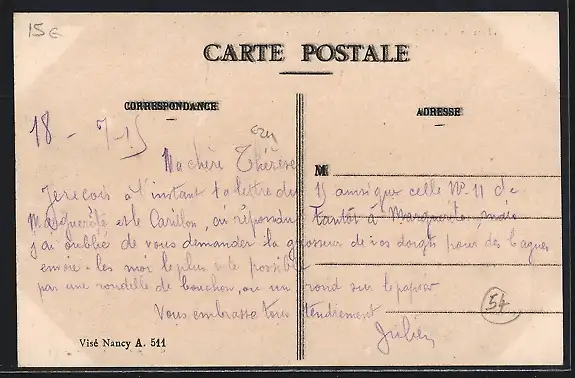 15€
CARTE POSTALE
CORRESPONDANCE
ADRESSE
18 - 7-15
Ma chère Thérèse
M
Je reçois à l'instant ta lettre du 15 ainsi que celle N° 11 de
Marguerite et le Carillon, ai répondu tantôt à Marguerite, mais
j'ai oublié de vous demander la grosseur de vos doigts pour des bagues
envoie-les moi le plus vite possible
par une rondelle de bouchon, ou un rond sur le papier
54
Vous embrasse tous tendrement
Julien
Visé Nancy A. 511